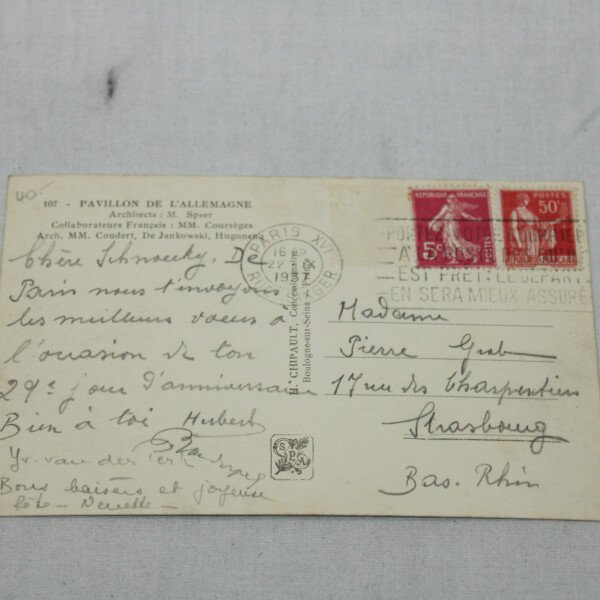 40-
107 - PAVILLON DE L'ALLEMAGNE
Architecte : M. Speer
Collaborateurs Français : MM. Courrèges
Arch. MM. Coudert, De Jankowski, Hugonenq
Chère Schnoecky, De
Paris nous t'envoyons
les meilleurs vœux à
l'occasion de ton
29e jour d'anniversaire
Bien à toi Hubert
Yv. van der
Bons baisers et joyeuse
fête - 
PARIS XVI
16
1937
RÉPUBLIQUE FRANÇAISE
5c
POSTES
POSTES
50c
RÉPUBLIQUE FRANÇAISE
EST PRÊT : LE DÉPART
EN SERA MIEUX ASSURÉ
H. CHIPAULT, Concessionnaire
Boulogne-sur-Seine
Madame
Pierre Grab
17 rue des Charpentiers
Strasbourg
Bas. Rhin